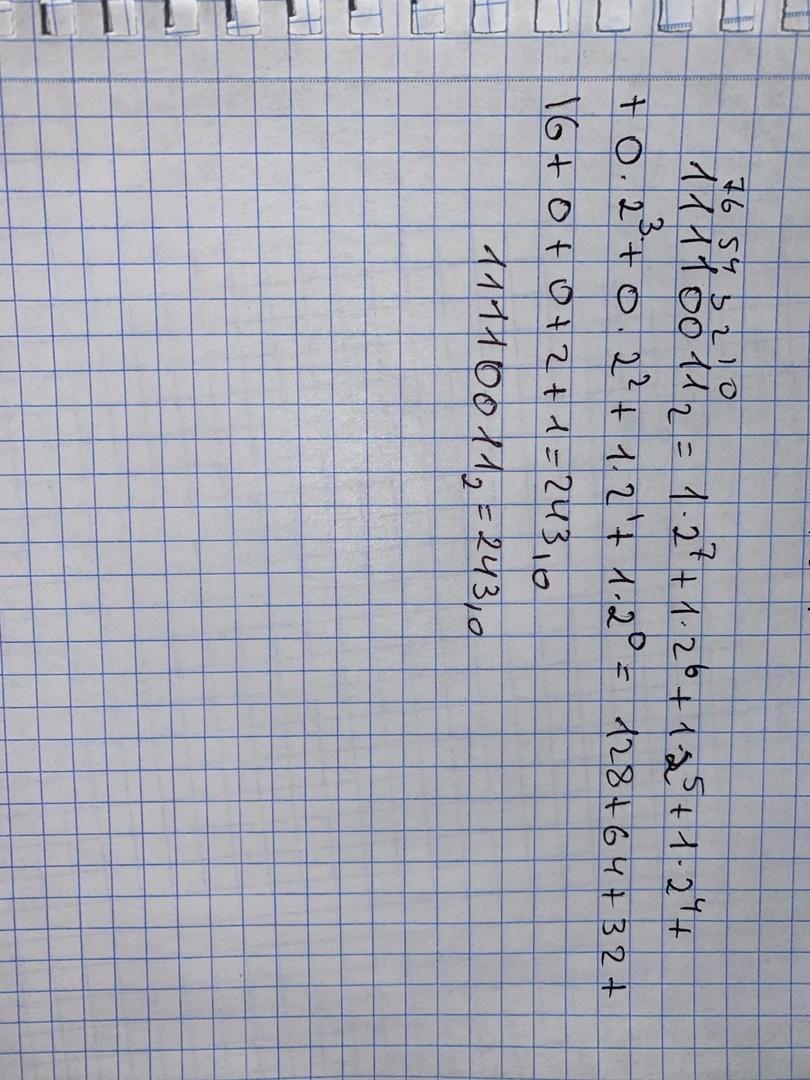 7 6 5 4 3 2 1 0
11110011₂ = 1·2⁷ + 1·2⁶ + 1·2⁵ + 1·2⁴ +
+ 0·2³ + 0·2² + 1·2¹ + 1·2⁰ = 128 + 64 + 32 +
16 + 0 + 0 + 2 + 1 = 243₁₀
11110011₂ = 243₁₀